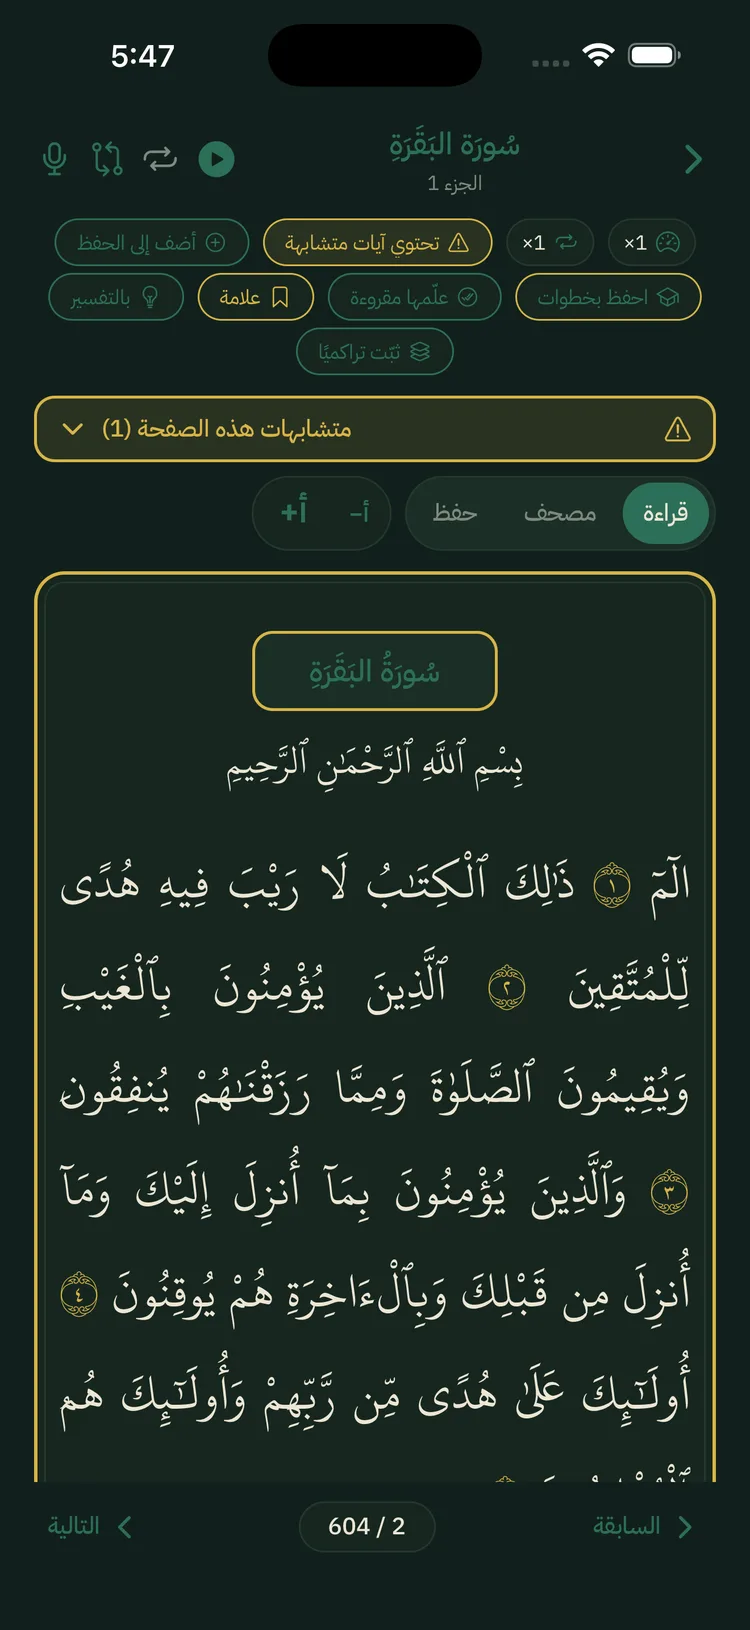 5:47
سُورَة البَقَرَةِ
الجزء 1
×1
×1
تحتوي آيات متشابهة
أضف إلى الحفظ
احفظ بخطوات
علّمها مقروءة
علامة
بالتفسير
ثبّت تراكميًا
متشابهات هذه الصفحة (1)
قراءة
مصحف
حفظ
أ-
أ+
سُورَةُ البَقَرَةِ
بِسْمِ ٱللَّهِ ٱلرَّحْمَٰنِ ٱلرَّحِيمِ
الٓمٓ ١ ذَٰلِكَ ٱلْكِتَٰبُ لَا رَيْبَ فِيهِ هُدًى
لِّلْمُتَّقِينَ ٢ ٱلَّذِينَ يُؤْمِنُونَ بِٱلْغَيْبِ
وَيُقِيمُونَ ٱلصَّلَوٰةَ وَمِمَّا رَزَقْنَٰهُمْ يُنفِقُونَ
٣ وَٱلَّذِينَ يُؤْمِنُونَ بِمَآ أُنزِلَ إِلَيْكَ وَمَآ
أُنزِلَ مِن قَبْلِكَ وَبِٱلْءَاخِرَةِ هُمْ يُوقِنُونَ ٤
أُولَٰٓئِكَ عَلَىٰ هُدًى مِّن رَّبِّهِمْ وَأُولَٰٓئِكَ هُمُ
السابقة
604 / 2
التالية